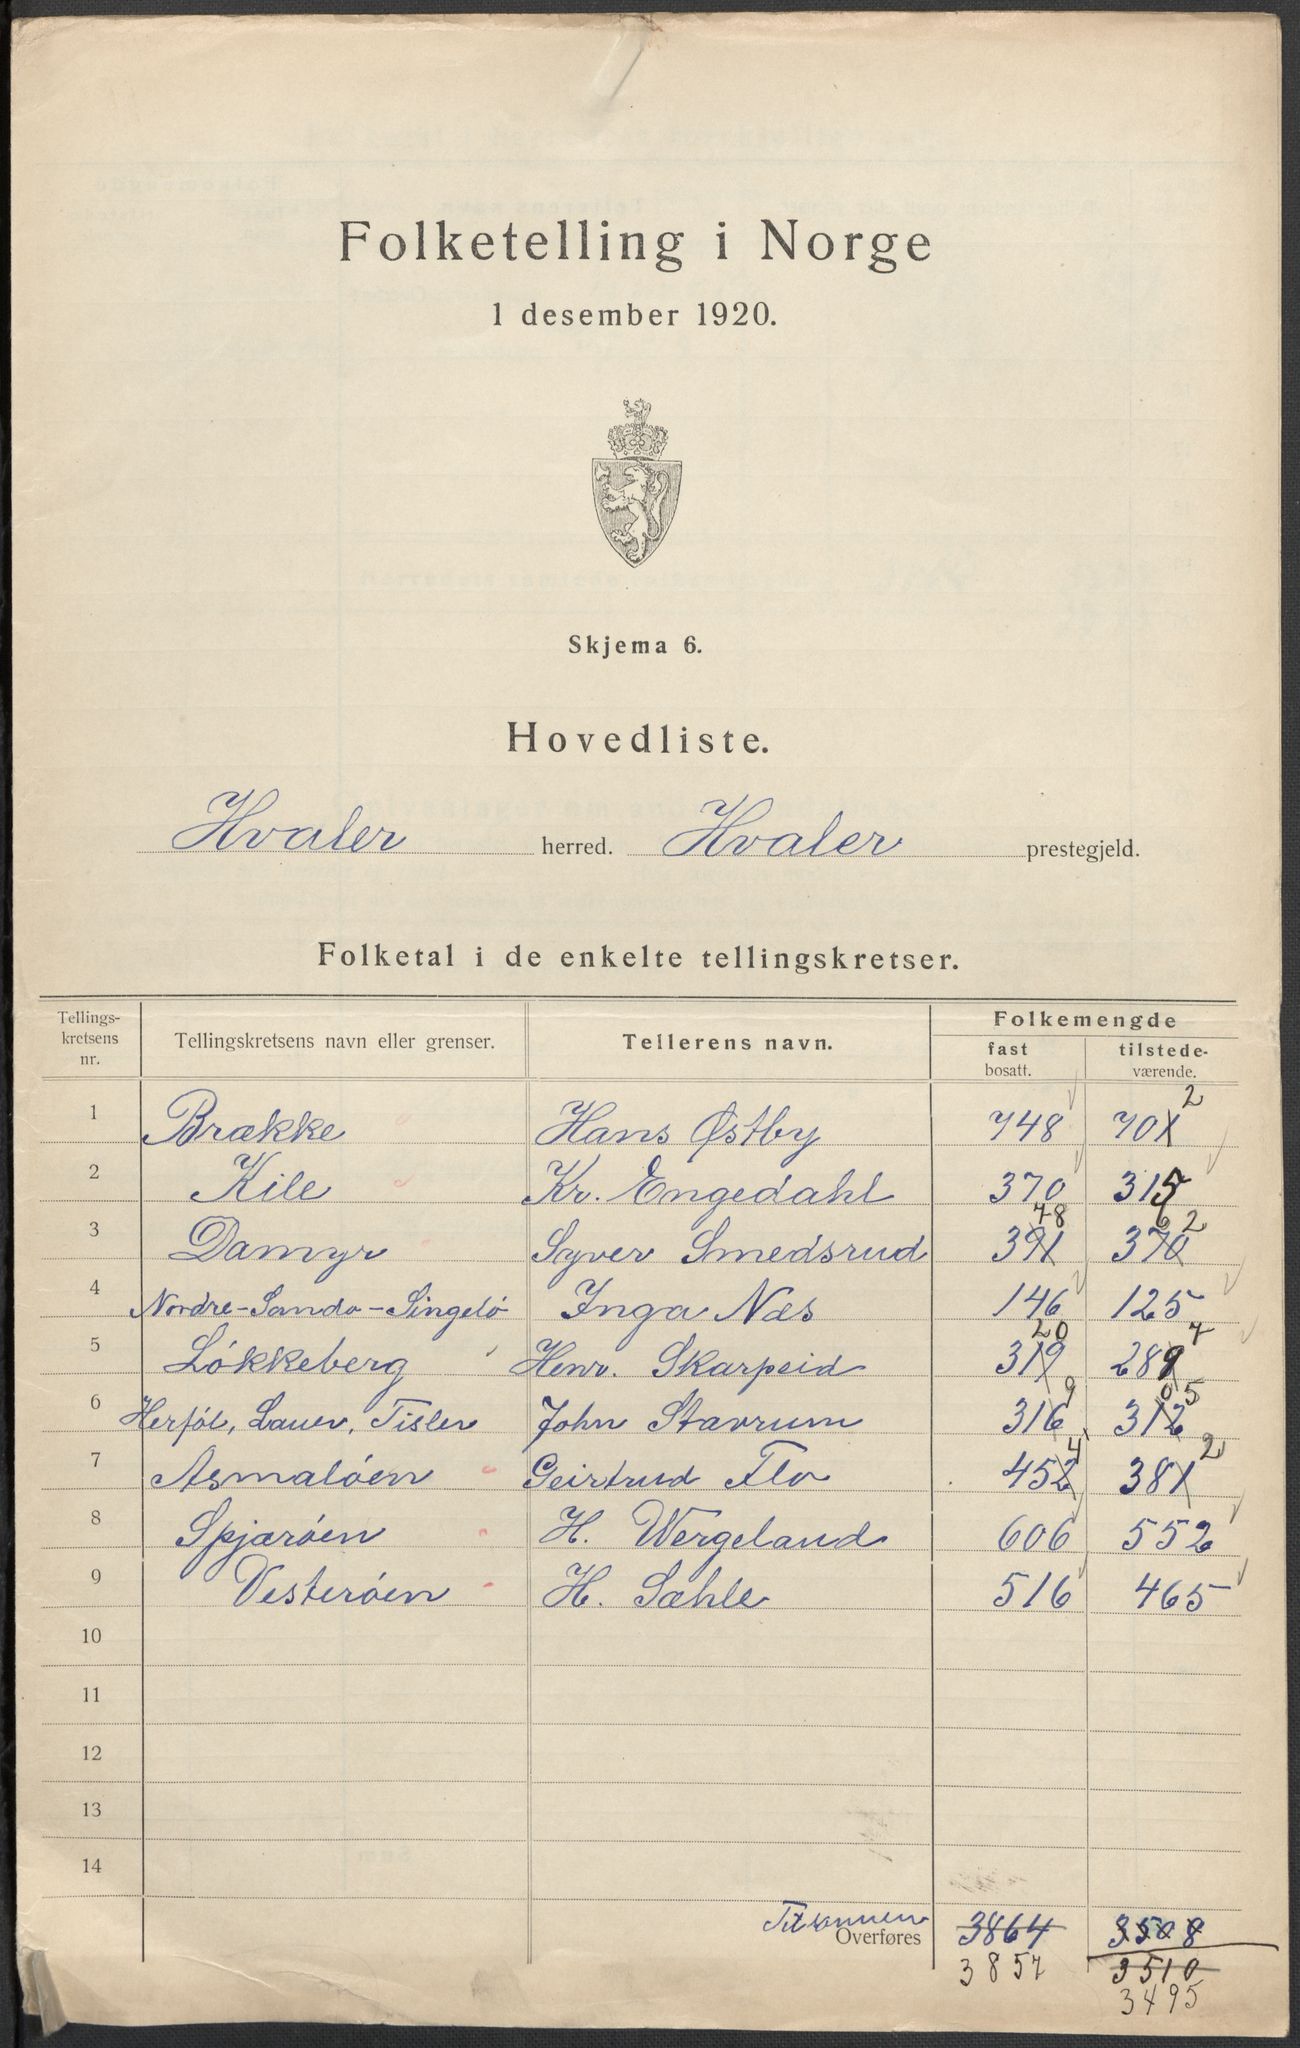 Folketelling i Norge
1 desember 1920.
Skjema 6.
Hovedliste.
Hvaler herred. Hvaler prestegjeld.
Folketal i de enkelte tellingskretser.
Tellings-kretsens nr. Tellingskretsens navn eller grenser. Tellerens navn. Folkemengde
fast bosatt. tilstede-værende.
1 Brække Hans Østby 748 701 2
2 Kile Kr. Engedahl 370 315
3 Damyr Syver Smedsrud 391 78 370 62
4 Nordre-Sandø-Singelö Inga Næs 146 125
5 Lökkeberg Henr. Skarpeid 319 20 289 7
6 Herföl, Lauer, Tisler John Stavrum 316 9 312 05
7 Asmalöen Geirtrud Flo 452 4 381 2
8 Spjæröen H. Wergeland 606 552
9 Vesteröen H. Sæhle 516 465
10
11
12
13
14
Tilsammen 3864 3508
Overføres
3857 3510
3495